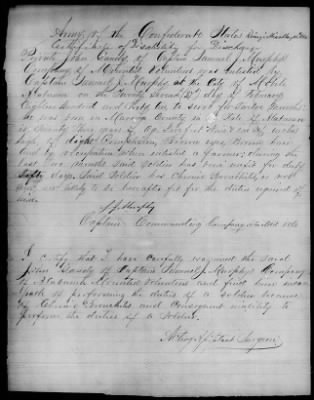 Army of the Confederate States
Certificate of Disability for Discharge
Private John Gandy of Captain Samuel J. Murphy's
Company of Mounted Volunteers was enlisted by
Captain Samuel J. Murphy at the City of Mobile
Alabama on the Twenty Second day of
Eighteen hundred and Sixty to serve for Twelve Months
he was born in County in State of Alabama
is Twenty Two years of age Six feet inches
high, of light Complexion, Brown eyes, Brown hair
and by occupation when enlisted a farmer, during the
last Two Months said Soldier has been unfit for duty
Sixty days. Said Soldier has Chronic Bronchitis and will
not likely to be hereafter fit for the duties required of
him
S J Murphy
Captain Commanding Company
I certify that I have carefully examined the said
John Gandy of Captain Samuel J. Murphy's Company
of Alabama Mounted Volunteers and find him incapable
of performing the duties of a soldier because
of Chronic Bronchitis and Consequent inability to
perform the duties of a Soldier.
Asst Surgeon